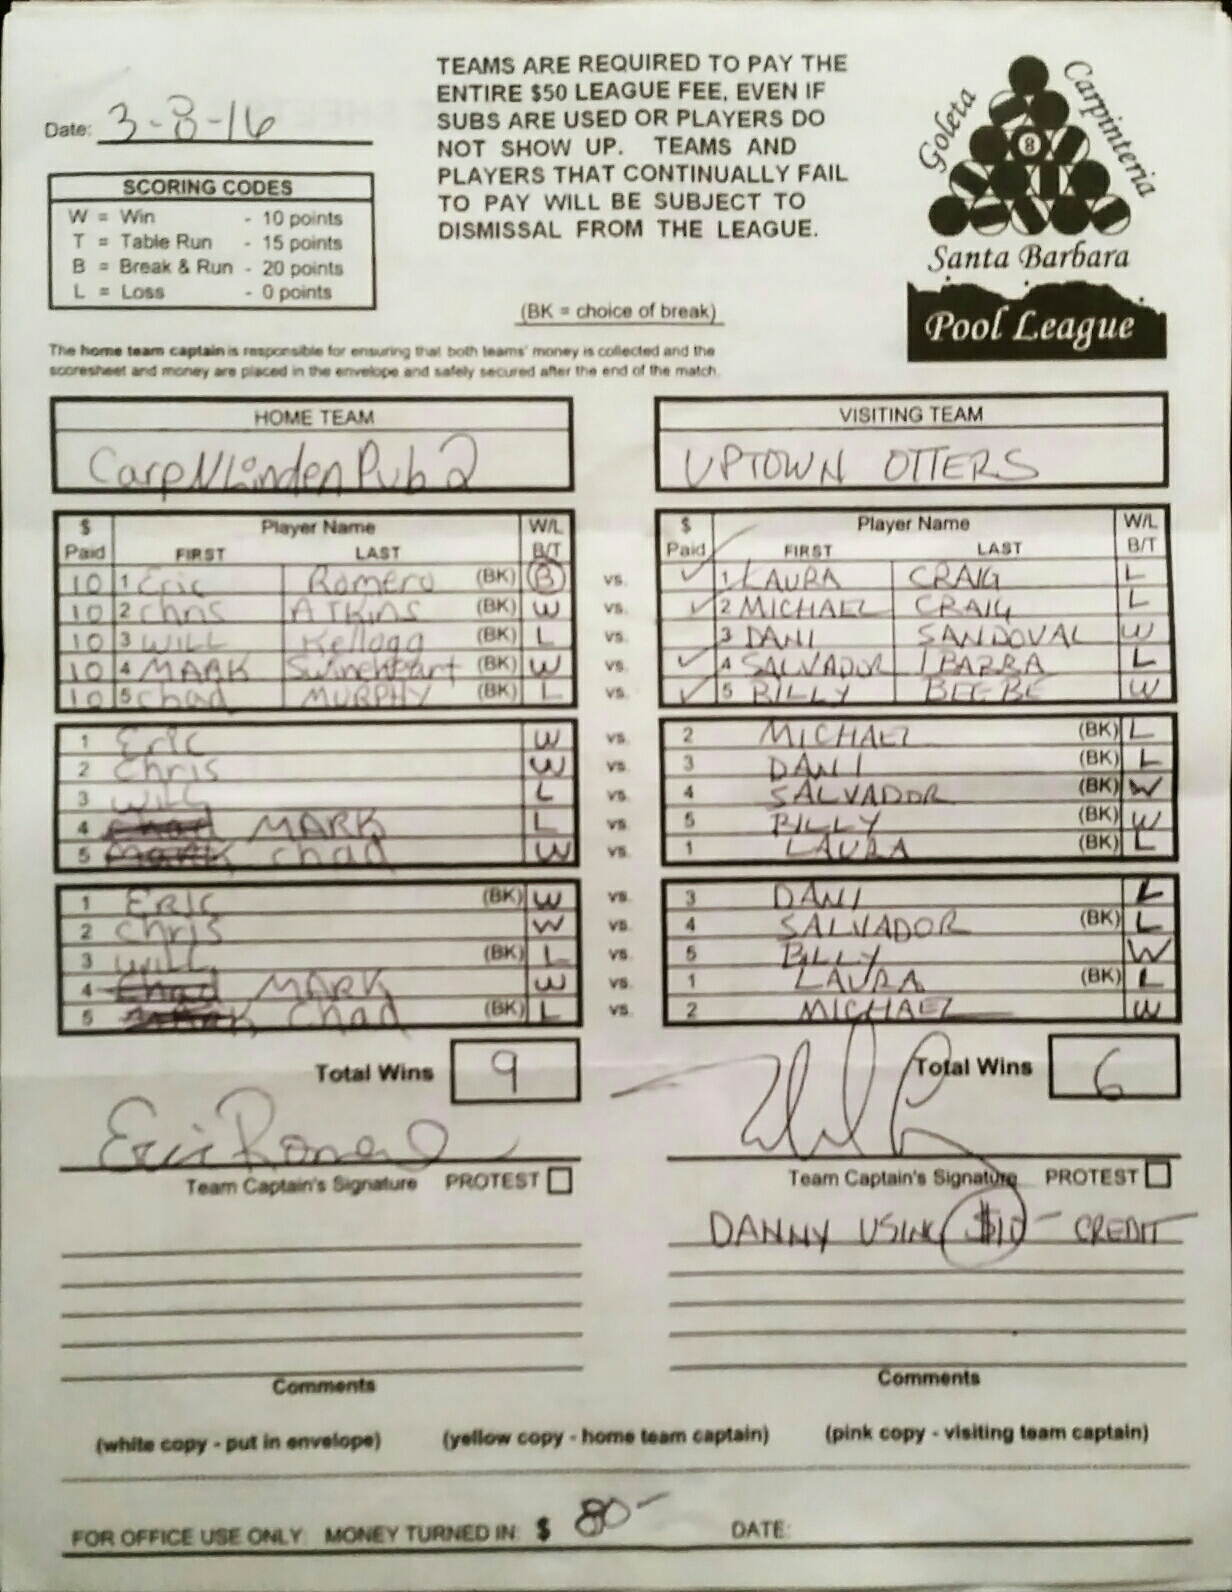 Date: 3-8-16
SCORING CODES
W = Win - 10 points
T = Table Run - 15 points
B = Break & Run - 20 points
L = Loss - 0 points
TEAMS ARE REQUIRED TO PAY THE
ENTIRE $50 LEAGUE FEE, EVEN IF
SUBS ARE USED OR PLAYERS DO
NOT SHOW UP. TEAMS AND
PLAYERS THAT CONTINUALLY FAIL
TO PAY WILL BE SUBJECT TO
DISMISSAL FROM THE LEAGUE.
(BK = choice of break)
Goleta
Carpinteria
8
Santa Barbara
Pool League
The home team captain is responsible for ensuring that both teams' money is collected and the
scoresheet and money are placed in the envelope and safely secured after the end of the match.
HOME TEAM
CarpNLindenPub 2
VISITING TEAM
UPTOWN OTTERS
$ Paid Player Name FIRST LAST W/L B/T
$ Paid Player Name FIRST LAST W/L B/T
10 1 Eric Romero (BK) B vs. 1 LAURA CRAIG L
10 2 Chris ATKINS (BK) W vs. 2 MICHAEL CRAIG L
10 3 WILL Kellogg (BK) L vs. 3 DANI SANDOVAL W
10 4 MARK Swineheart (BK) W vs. 4 SALVADOR IBARRA L
10 5 Chad MURPHY (BK) L vs. 5 BILLY BEEBE W
1 Eric W vs. 2 MICHAEL (BK) L
2 Chris W vs. 3 DANI (BK) L
3 WILL L vs. 4 SALVADOR (BK) W
4 Chad MARK L vs. 5 BILLY (BK) W
5 Mark Chad W vs. 1 LAURA (BK) L
1 ERIC (BK) W vs. 3 DANI L
2 Chris W vs. 4 SALVADOR (BK) L
3 WILL (BK) L vs. 5 BILLY W
4 Chad MARK W vs. 1 LAURA (BK) L
5 Chad (BK) L vs. 2 MICHAEL W
Total Wins 9
Total Wins 6
Eric Romero
Team Captain's Signature PROTEST
Team Captain's Signature PROTEST
DANNY USING $10- CREDIT
Comments
Comments
(white copy - put in envelope) (yellow copy - home team captain) (pink copy - visiting team captain)
FOR OFFICE USE ONLY: MONEY TURNED IN: $ 80- DATE: